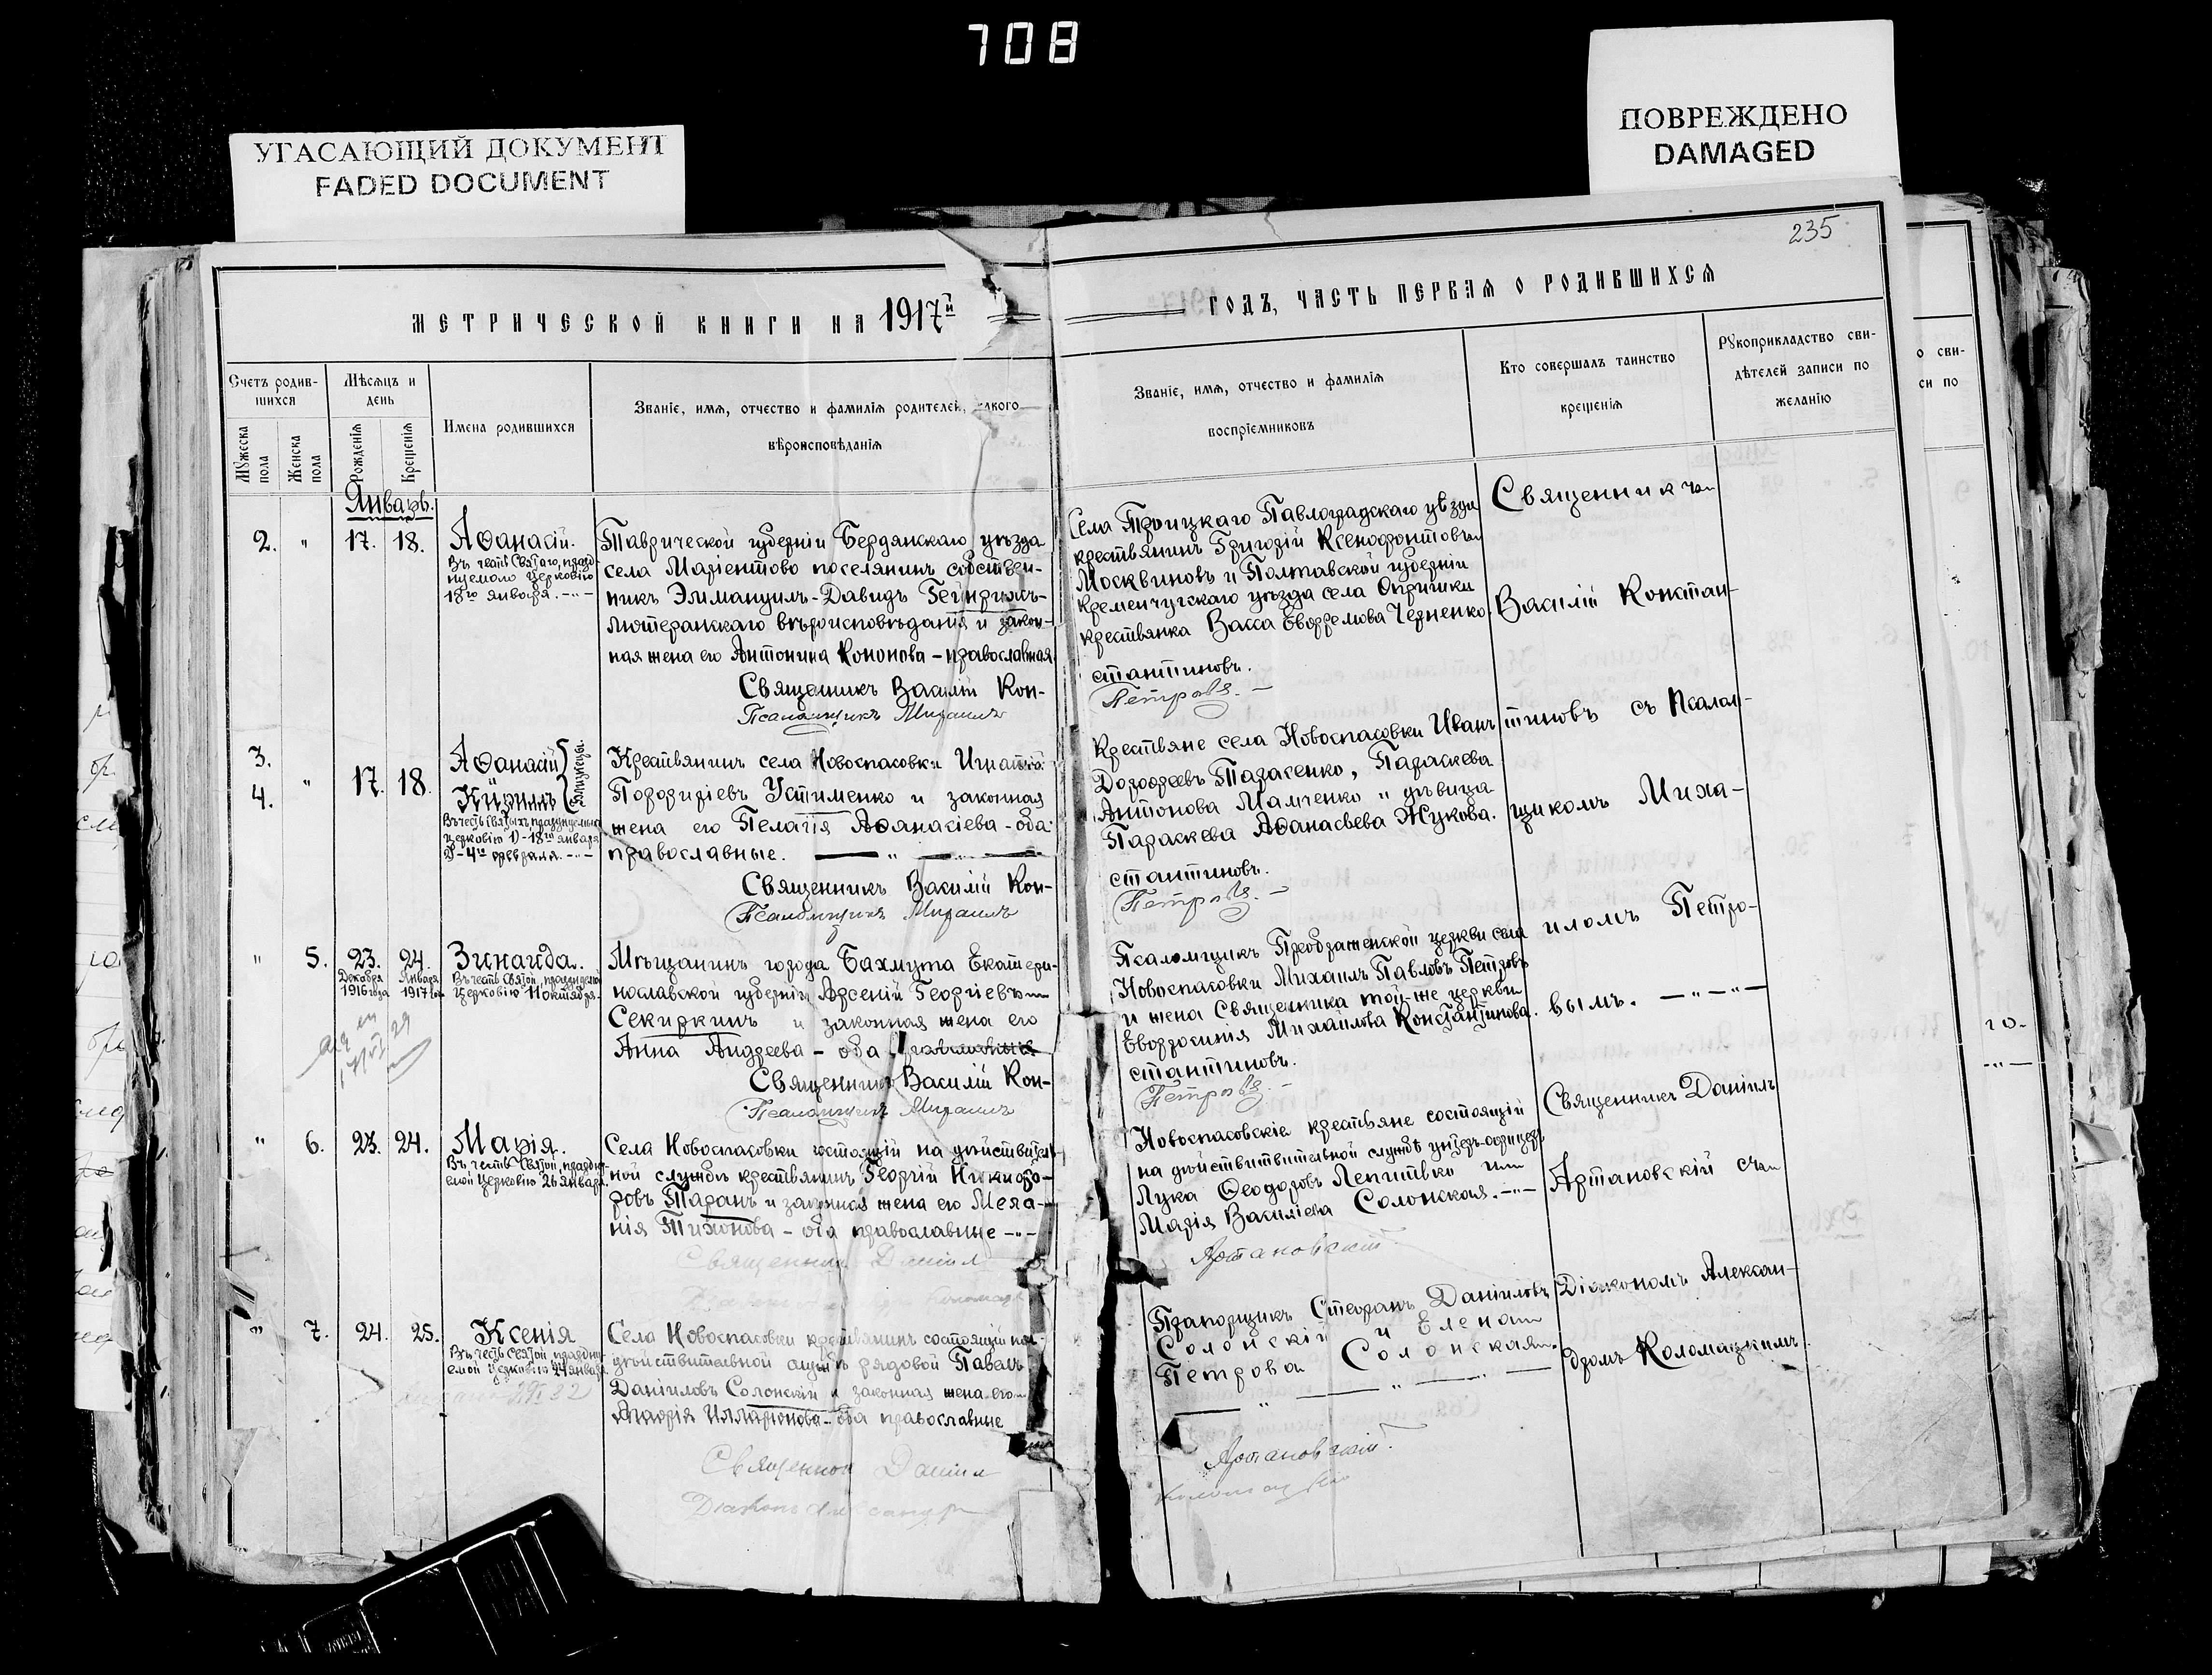 708
УГАСАЮЩИЙ ДОКУМЕНТ
FADED DOCUMENT
ПОВРЕЖДЕНО
DAMAGED
235
МЕТРИЧЕСКОЙ КНИГИ НА 1917й
ГОДЪ, ЧАСТЬ ПЕРВАЯ О РОДИВШИХСЯ
Счетъ родив-
шихся
Мѣсяцъ и
день
Мужеска
пола
Женска
пола
Рожденія
Крещенія
Имена родившихся
Званіе, имя, отчество и фамилія родителей, какого
вѣроисповѣданія
Званіе, имя, отчество и фамилія
воспріемниковъ
Кто совершалъ таинство
крещенія
Рукоприкладство сви-
дѣтелей записи по
желанію
о сви-
си по
Январь.
2. " 17. 18.
Аѳанасій.
Въ честь Святаго, празд-
нуемаго Церковію
18го января. -"-
Таврической губерніи Бердянскаго уѣзда
села Маріентово поселянинъ собствен-
никъ Эммануилъ-Давидъ Гейнрихъ-
лютеранскаго вѣроисповѣданія и закон-
ная жена его Антонина Кононова - православная
Священникъ Василій Кон-
Псаломщикъ Михаилъ
Села Троицкаго Павлоградскаго уѣзда
крестьянинъ Григорій Ксенофонтовъ
Москвиновъ и Полтавской губерніи
Кременчугскаго уѣзда села Опришки
крестьянка Васса Евфремова Черненко.
стантиновъ.
Петровъ. -
Священникъ
Василій Констан-
тиновъ съ Псалом-
щикомъ Миха-
иломъ Петро-
вымъ. -"-"-
3.
4. " 17. 18.
Аѳанасій
и
Кириллъ
близнецы.
Въ честь Святыхъ, празднуемыхъ
церковію 1) - 18го января
2) - 4го февраля. -"-
Крестьянинъ села Новоспасовки Игнатій
Порфиріевъ Устименко и законная
жена его Пелагія Аѳанасіева - оба
православные. - " -
Священникъ Василій Кон-
Псаломщикъ Михаилъ
Крестьяне села Новоспасовки Иванъ
Дорофеевъ Тарасенко, Параскева
Антонова Мамченко и дѣвица
Параскева Аѳанасьева Жукова.
стантиновъ.
Петровъ. -
" 5. 23. 24.
Декабря
1916 года
Января
1917 года
Зинаида.
Въ честь Святой, празднуемой
Церковію 11 октября. -
Мѣщанинъ города Бахмута Екатери-
нославской губерніи Арсеній Георгіевъ
Секиркинъ и законная жена его
Анна Андреева - оба православные
Священникъ Василій Кон-
Псаломщикъ Михаилъ
Псаломщикъ Преображенской церкви села
Новоспасовки Михаилъ Павловъ Петровъ
и жена Священника той-же церкви
Евфросинія Михайлова Константинова.
стантиновъ.
Петровъ. -
" 6. 23. 24.
Марія.
Въ честь Святой, праздну-
емой Церковію 26 января.
Села Новоспасовки состоящій на дѣйствитель-
ной службѣ крестьянинъ Георгій Никифо-
ровъ Таранъ и законная жена его Мела-
нія Тихонова - оба православные -"-
Священникъ Даніилъ
Новоспасовскіе крестьяне состоящій
на дѣйствительной службѣ унтеръ-офицеръ
Лука Ѳеодоровъ Лепитько и
Марія Василіева Солонская. -"-
Артановскій
Священникъ Даніилъ
Артановскій съ
Діакономъ Алексан-
дромъ Коломацкимъ.
" 7. 24. 25.
Ксенія
Въ честь Святой праздну-
емой Церковію 24 января.
Села Новоспасовки крестьянинъ состоящій на
дѣйствительной службѣ рядовой Павелъ
Даніиловъ Солонскій и законная жена его
Марія Илларіонова - оба православные
Священникъ Даніилъ
Діаконъ Александръ
Прапорщикъ Стефанъ Даніиловъ
Солонскій и Елена
Петрова Солонская.
- " - " -
Артановскій.
Коломацкій